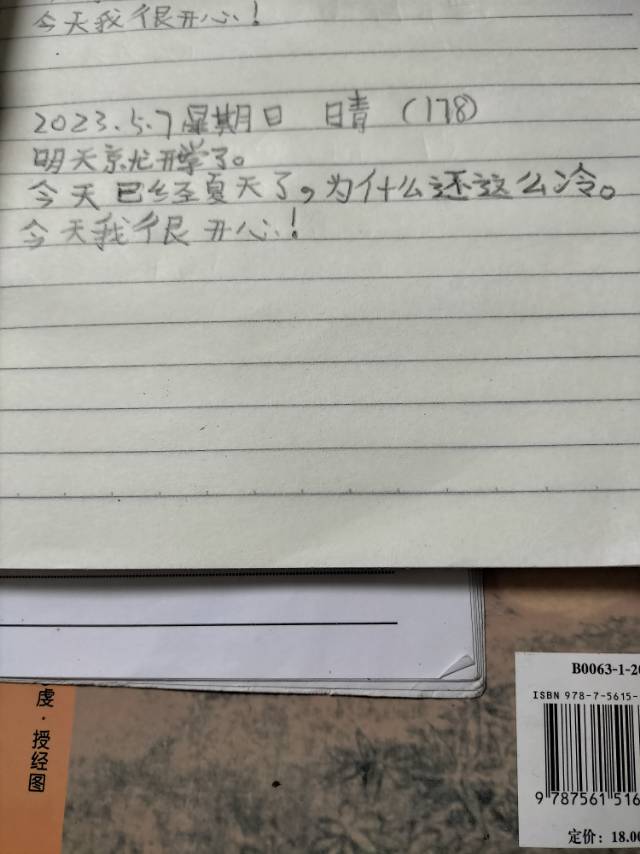 今天我很开心!
2023.5.7星期日 日青 (178)
明天京尤开学了。
今天已经夏天了,为什么还这么冷。
今天我很开心!
虔·授经图
B0063-1-20
ISBN 978-7-5615-
9 787561 516
定价:18.00